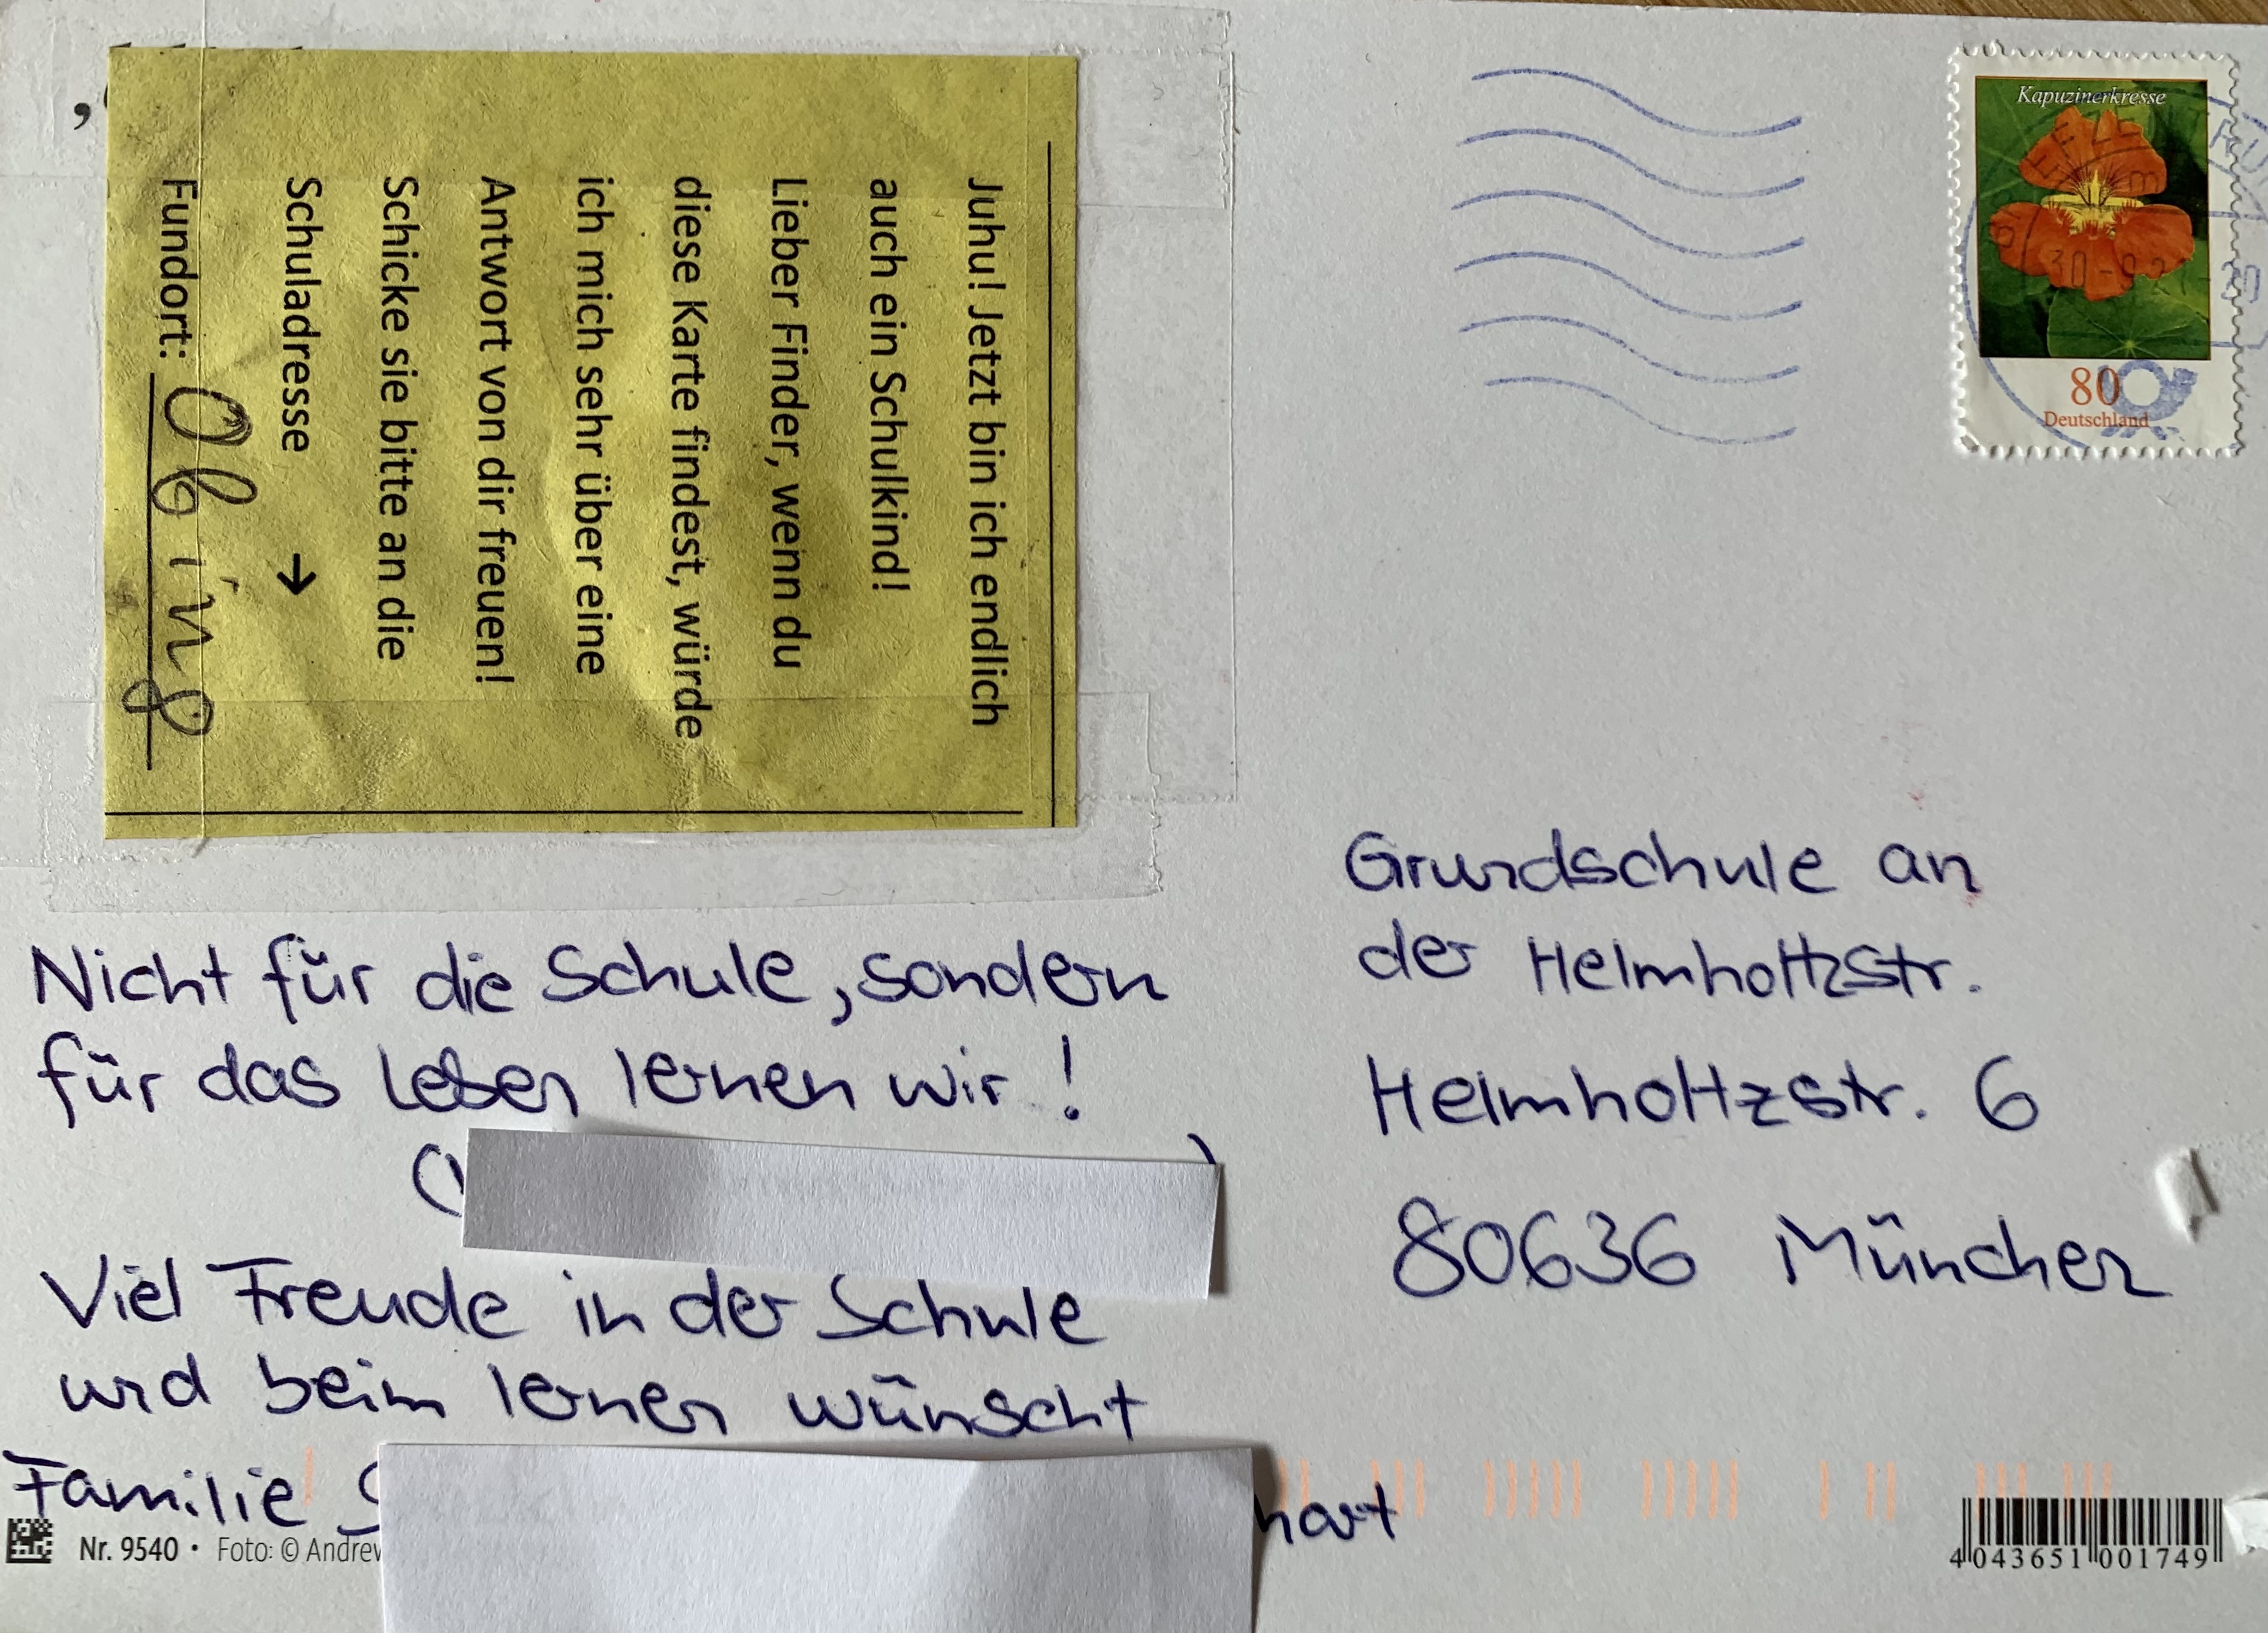 Juhu! Jetzt bin ich endlich
auch ein Schulkind!
Lieber Finder, wenn du
diese Karte findest, würde
ich mich sehr über eine
Antwort von dir freuen!
Schicke sie bitte an die
Schuladresse →
Fundort: Obing
Nicht für die Schule, sondern
für das Leben lernen wir!
Viel Freude in der Schule
und beim lernen wünscht
Familie
Nr. 9540 • Foto: ©
Kapuzinerkresse
30-9.21
80
Deutschland
Grundschule an
der Helmholtzstr.
Helmholtzstr. 6
80636 München
4 043651 001749